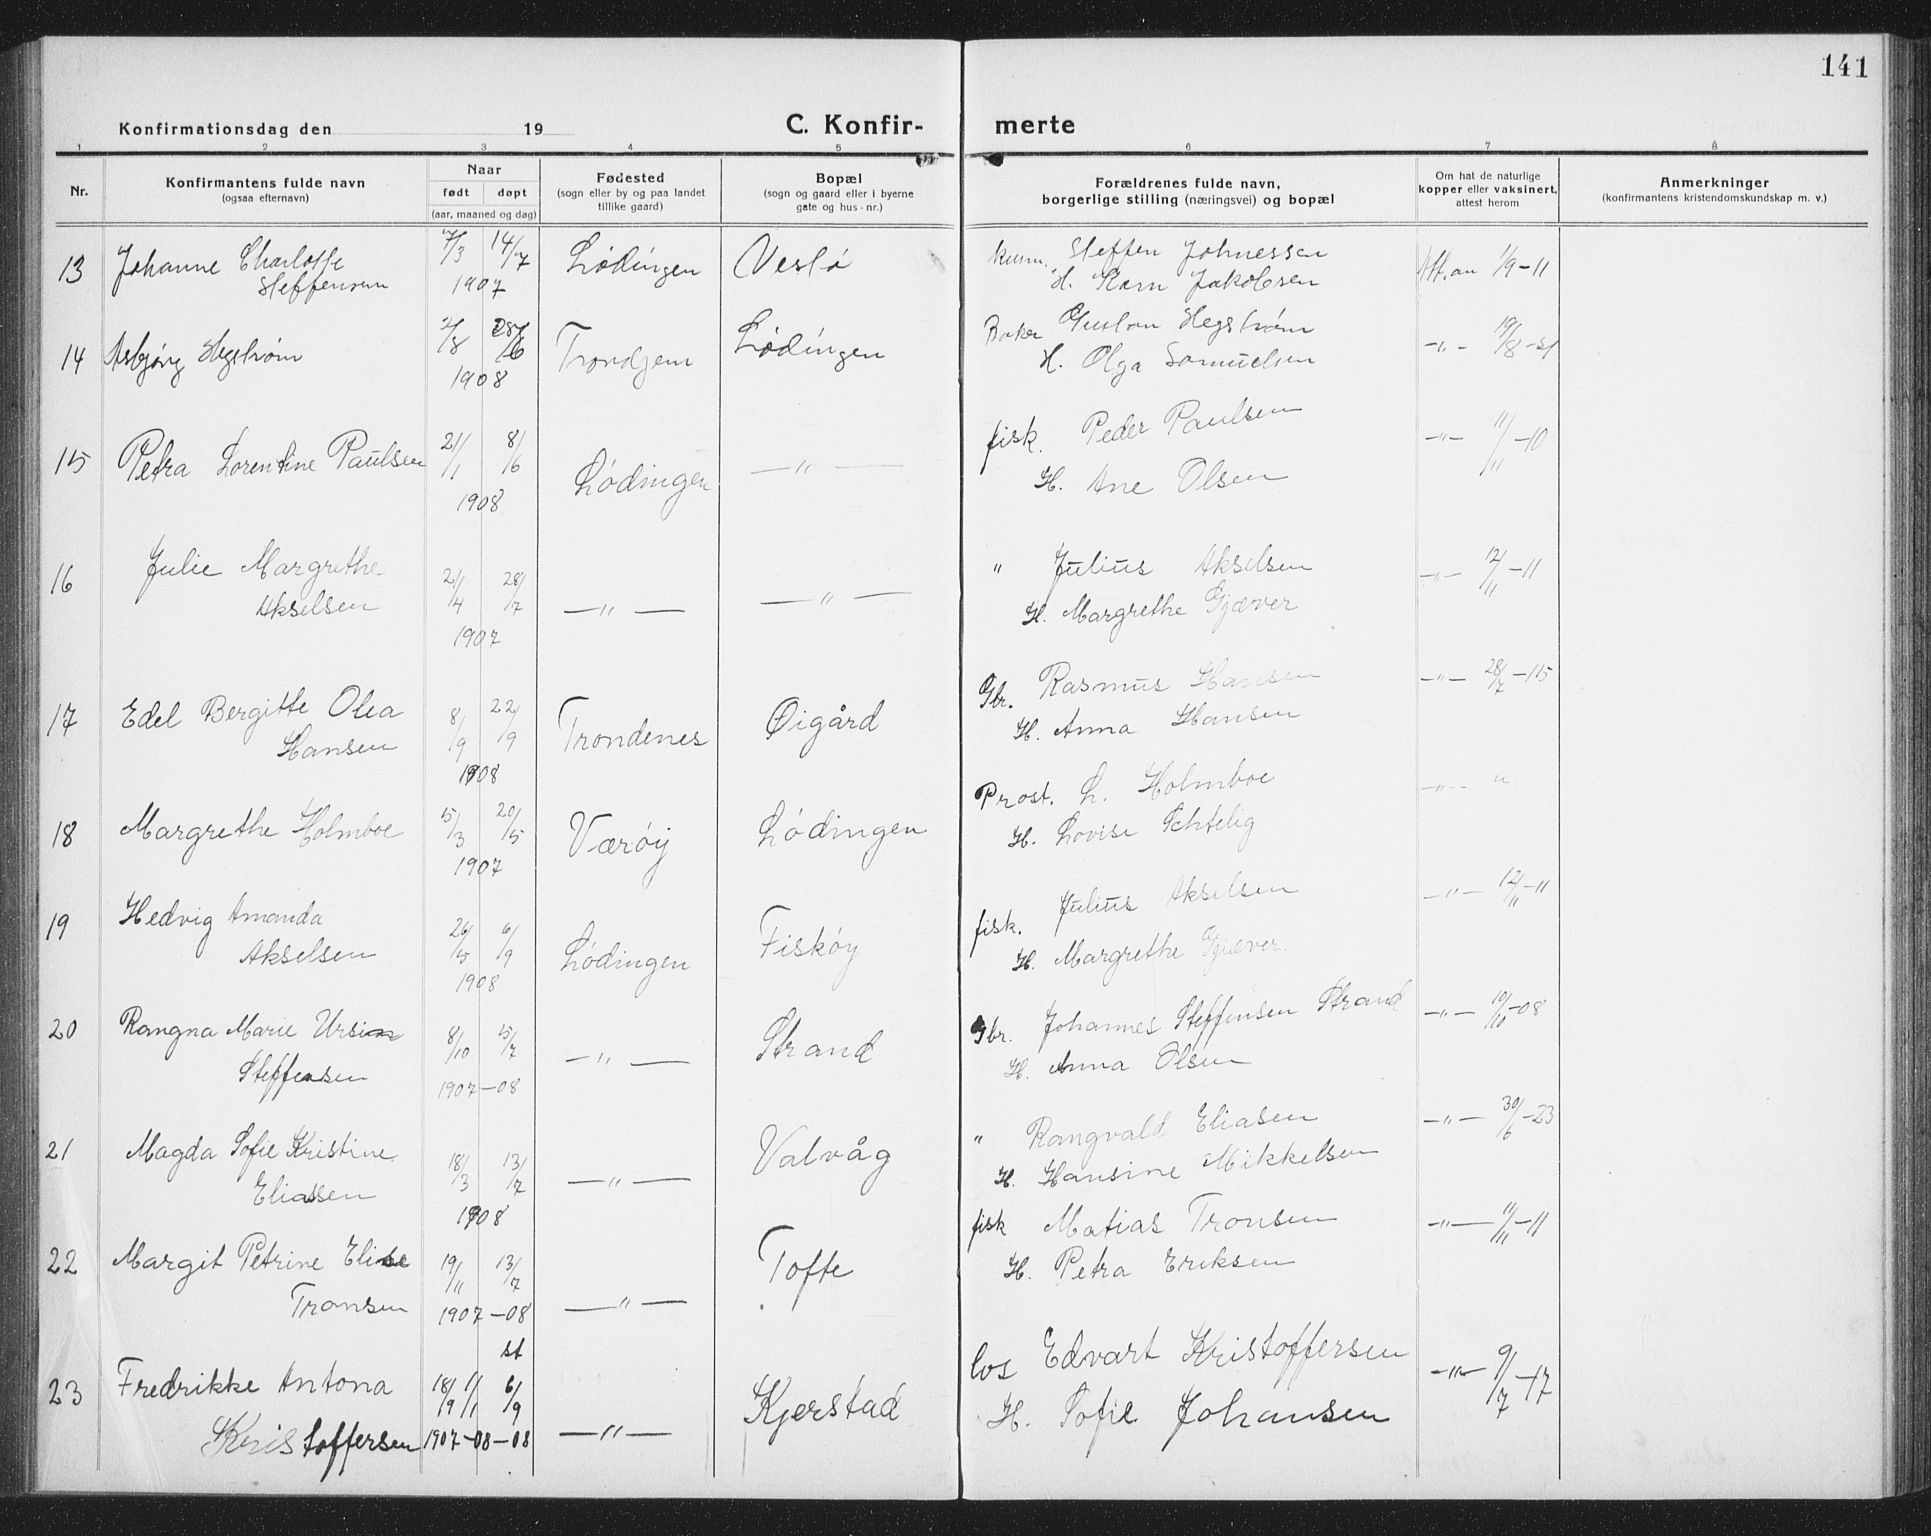 141
Konfirmationsdag den 19
C. Konfir-
merte
1 2 3 4 5 6 7 8
Nr.
Konfirmantens fulde navn
(ogsaa efternavn)
Naar
født døpt
(aar, maaned og dag)
Fødested
(sogn eller by og paa landet
tillike gaard)
Bopæl
(sogn og gaard eller i byerne
gate og hus-nr.)
Forældrenes fulde navn,
borgerlige stilling (næringsvei) og bopæl
Om hat de naturlige
kopper eller vaksinert,
attest herom
Anmerkninger
(konfirmantens kristendomskundskap m. v.)
13 Johanne Charlotte 7/3 14/7 Lødingen Vestø Steffen Johnessen Att. an 1/9-11
Steffensen 1907 H. Karn Jakobsen
14 Asbjørg Hegstrøm 2/8 28/6 Trondjem Lødingen Baker Gustav Hegstrøm -"- 19/8-21
1908 H. Olga Samuelsen
15 Petra Lorentine Paulsen 21/1 8/6 Lødingen -"- fisk. Peder Paulsen -"- 11/11-10
1908 H. Ane Olsen
16 Julie Margrethe 21/4 28/7 -"- -"- " Julius Akselsen -"- 12/11-11
Akselsen 1907 H. Margrethe Gjæver
17 Edel Bergitte Olea 8/9 22/9 Trondenes Øigård Gbr. Rasmus Hansen -"- 28/7-15
Hansen 1908 H. Anna Hansen
18 Margrethe Holmboe 5/3 20/5 Værøy Lødingen Prost. L. Holmboe -"- "
1907 H. Lovise Schtelig
19 Hedvig Amanda 26/5 6/9 Lødingen Fiskøy fisk. Julius Akselsen -"- 12/11-11
Akselsen 1908 H. Margrethe Gjæver
20 Rangna Marie Ursin 8/10 5/7 -"- Strand Gbr. Johannes Steffensen Strand -"- 10/10-08
Steffensen 1907-08 H. Anna Olsen
21 Magda Sofie Kristine 18/3 13/7 -"- Valvåg " Rangvald Eliasen -"- 30/6-23
Eliassen 1908 H. Hansine Mikkelsen
22 Margit Petrine Elise 19/11 13/7 -"- Tofte fisk Matias Tronsen -"- 11/11-11
Tronsen 1907-08 H. Petra Eriksen
st
23 Fredrikke Antona 18/9 1/1 6/9 -"- Kjerstad los Edvart Kristoffersen -"- 9/7-17
Kristoffersen 1907-08-08 H. Sofie Johansen